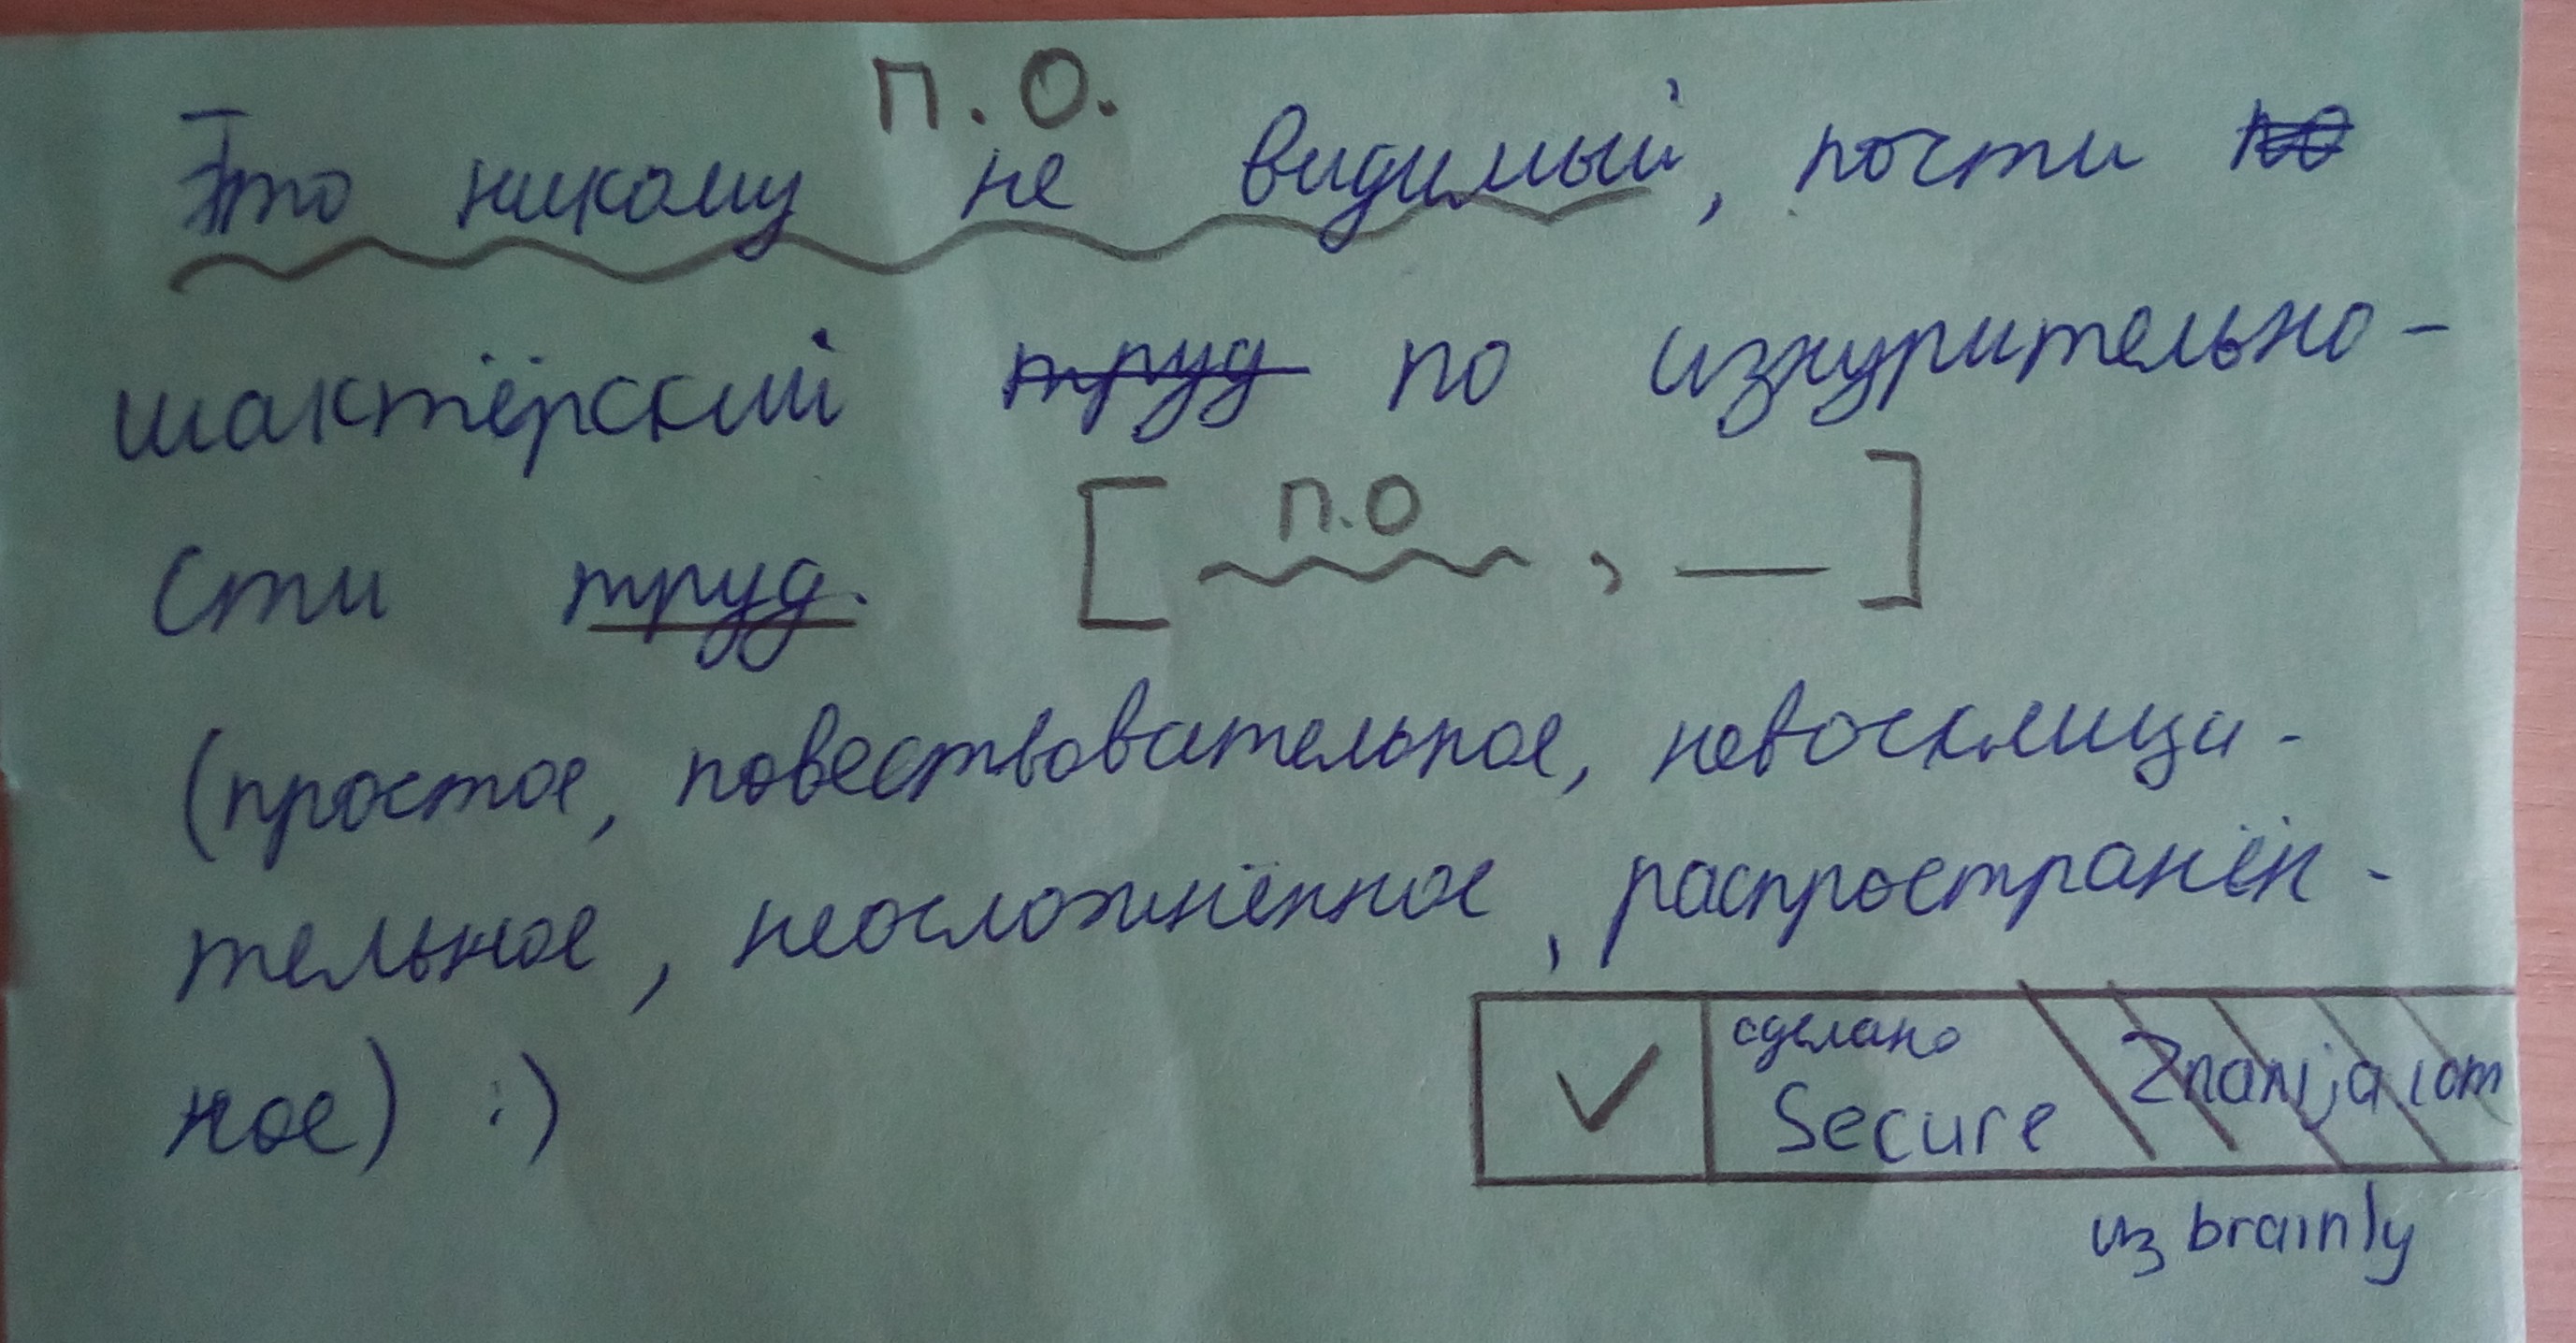 п.о.
Это никому не видимый, почти ~~по~~
шахтёрский ~~труд~~ по изнурительно-
сти труд. [ п.о , — ]
(простое, повествовательное, невосклица-
тельное, неосложнённое, распространён-
ное) :)
✓ сделано
Secure Znanija.com
из brainly